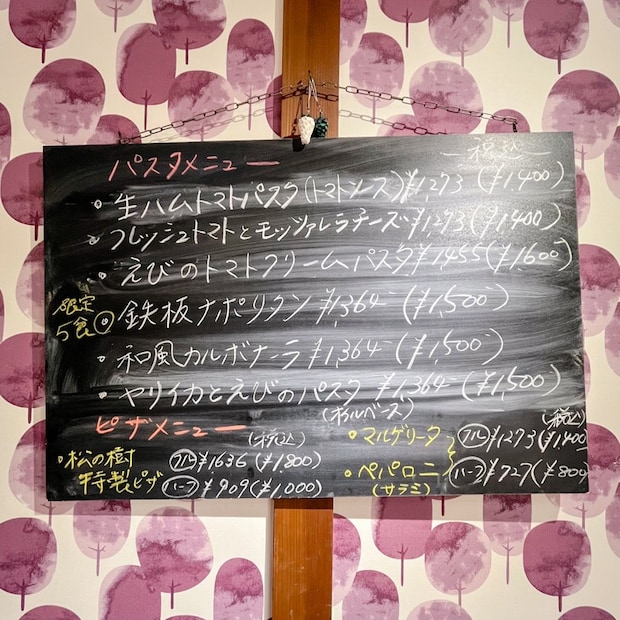 パスタメニュー 税込
・生ハムトマトパスタ(トマトソース)¥1,273(¥1,400)
・フレッシュトマトとモッツァレラチーズ¥1,273(¥1,400)
・えびのトマトクリームパスタ¥1,455(¥1,600)
限定
5食
・鉄板ナポリタン¥1,364-(¥1,500)
・和風カルボナーラ¥1,364-(¥1,500)
・ヤリイカとえびのパスタ ¥1,364-(¥1,500)
(オイルベース)
ピザメニュー
(税込)
・松の樹
特製ピザ
フル ¥1636(¥1,800)
ハーフ ¥909(¥1,000)
・マルゲリータ
・ペパロニ
(サラミ)
(税込)
フル ¥1273(¥1400)
ハーフ ¥727(¥800